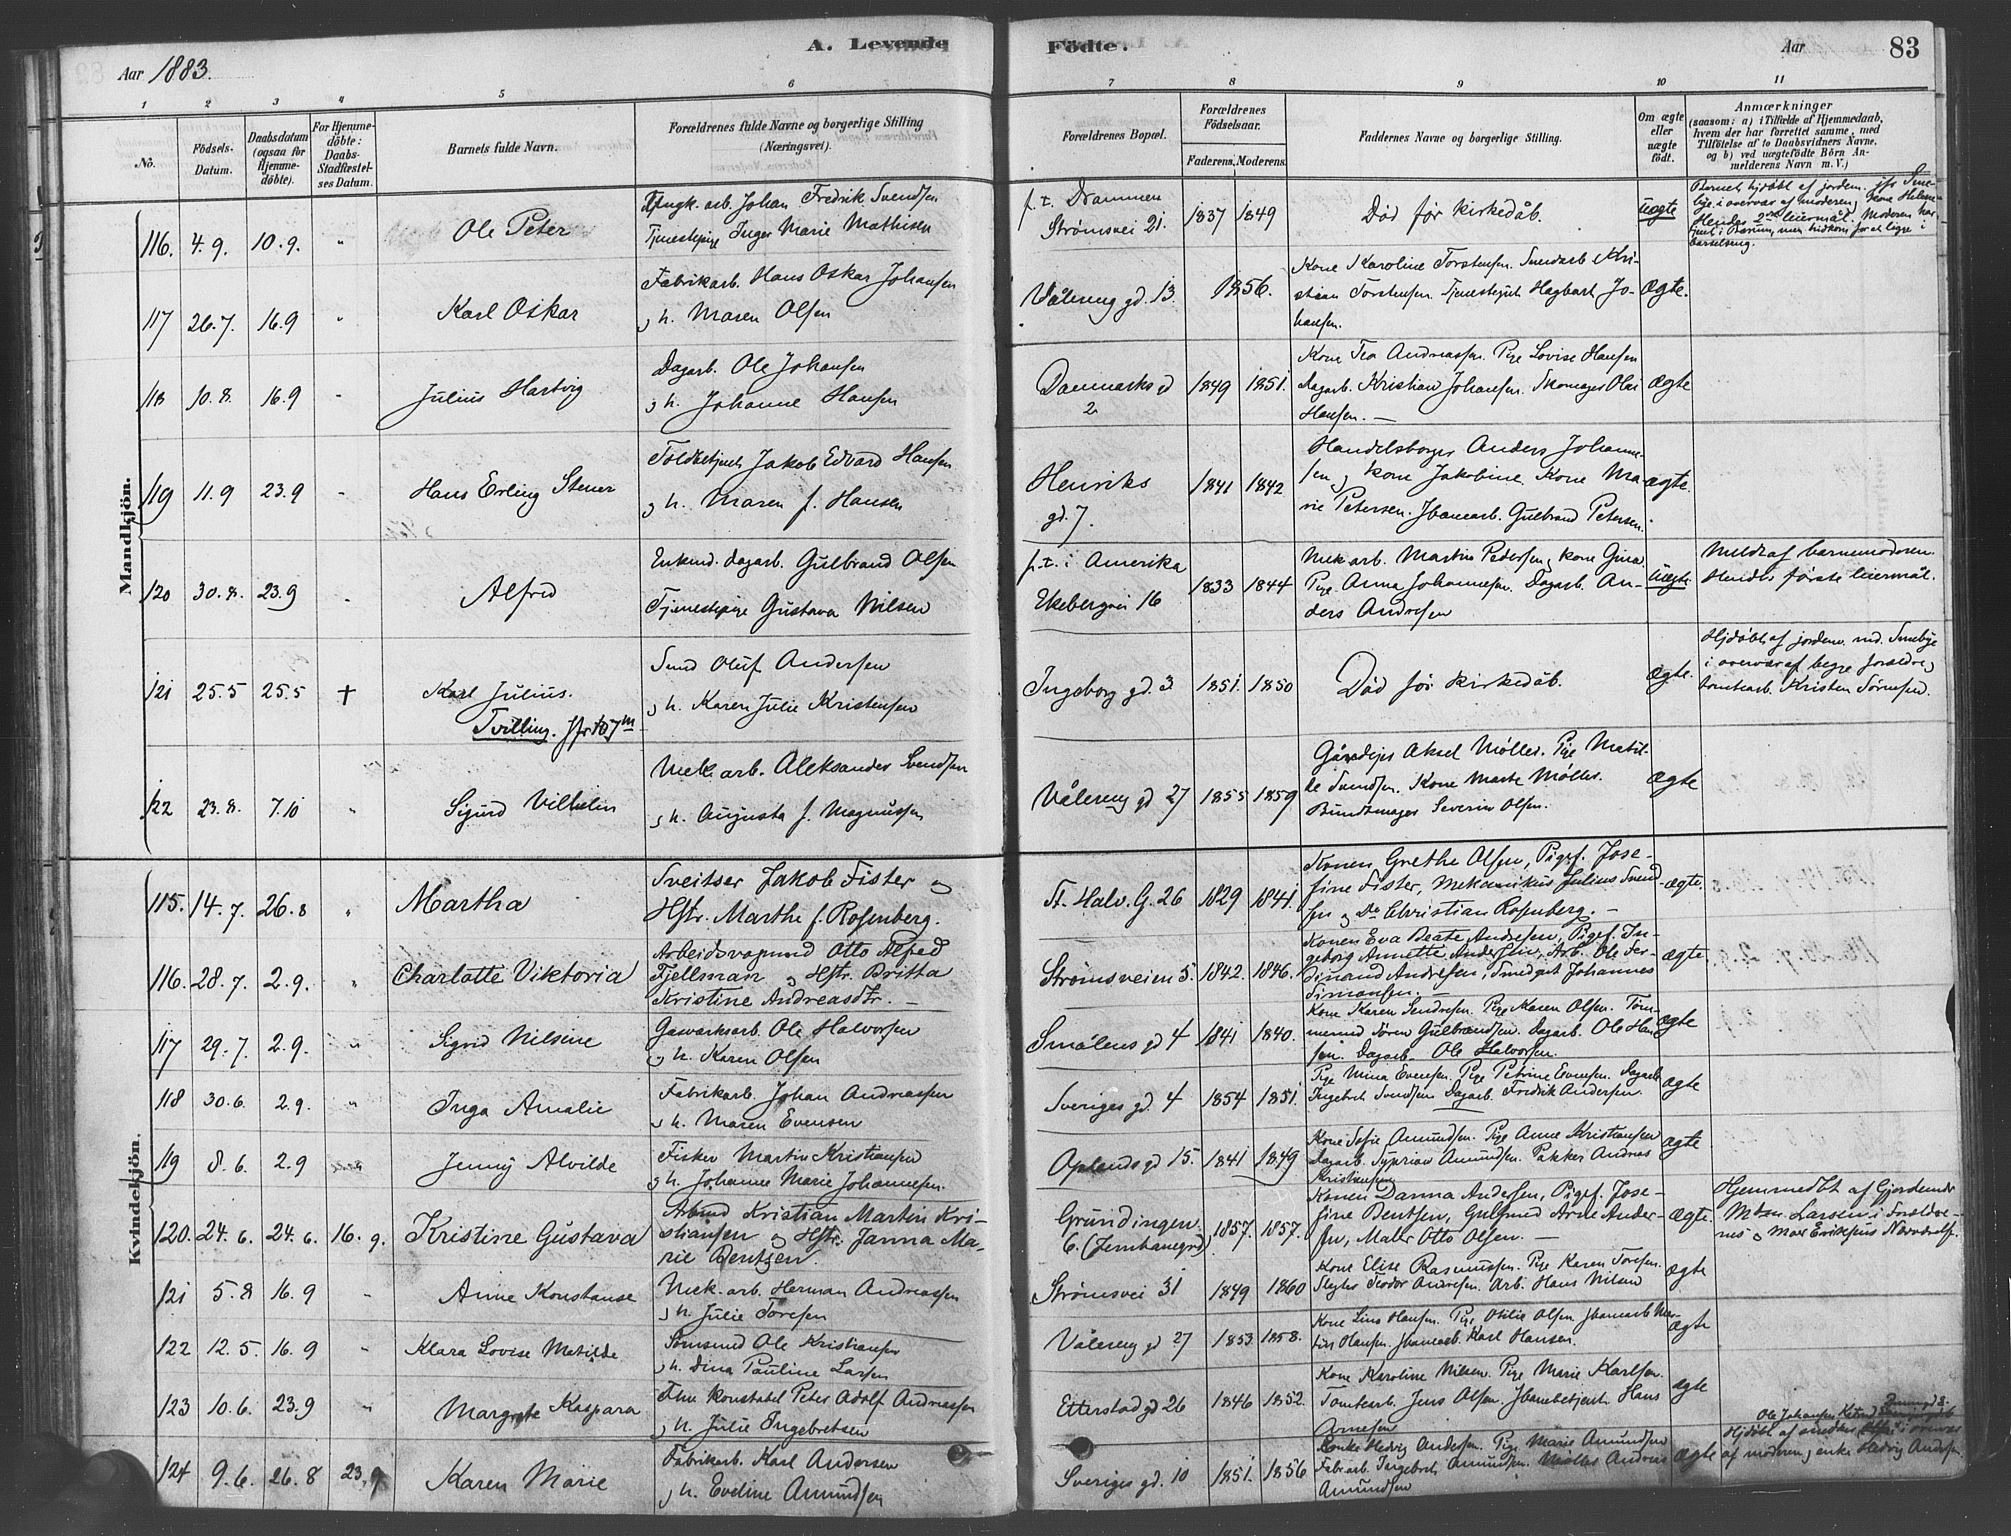 A. Levende Fødte.
Aar 1883.
Aar 83
1 2 3 4 5 6 7 8 9 10 11
No.
Födsels-Datum.
Daabsdatum (ogsaa for Hjemmedöbte).
For Hjemmedöbte: Daabs-Stadfæstelses Datum.
Barnets fulde Navn.
Forældrenes fulde Navne og borgerlige Stilling (Næringsvei).
Forældrenes Bopæl.
Forældrenes Födselsaar.
Faderens. Moderens.
Faddernes Navne og borgerlige Stilling.
Om ægte eller uægte födt.
Anmærkninger
(saasom: a) i Tilfælde af Hjemmedaab,
hvem der har forrettet samme, med
Tilföielse af to Daabsvidners Navne,
og b) ved uægtefödte Börn Anmelderens Navn m. V.)
Mandkjön.
116. 4.9. 10.9. " Ole Peter
arb. Johan Fredrik Svendsen
Tjenestepige Inger Marie Mathisen
p.t. Drammen
Strømsvei 21. 1837 1849 Død før kirkedåb. Uægte
117 26.7. 16.9 " Karl Oskar
Fabrikarb. Hans Oskar Johansen
og h. Maren Olsen
Vålereng gd. 13. 1856.
Kone Karoline Torstensen. Smedarb. Kri-
stian Torstensen. Tjenestegut Hagbart Jo-
hansen.
Ægte.
118 10.8. 16.9 - Julius Hartvig
Dagarb. Ole Johansen
og h. Johanne Hansen
Danmarks gd
2 1849 1851.
Kone Tea Andreassen. Pige Lovise Hansen
Dagarb. Kristian Johansen. Skomager Olai
Hansen. —
Ægte
119 11.9 23.9 - Hans Erling Stener
Toldbetjent Jakob Edvard Hansen
og h. Maren f. Hansen
Henriks
gd. 7. 1841 1842
Handelsborger Anders Johanne-
sen og kone Jakobine. Kone Ma-
rie Petersen. Jbanearb. Gulbrand Petersen.
Ægte.
120 30.8. 23.9 - Alfred
Enkemd. dagarb. Gulbrand Olsen
Tjenestepige Gustava Nilsen
p.t. i Amerika
Ekebergvei 16 1833 1844
Mek. arb. Martin Pedersen og kone Gina
Pige Anna Johannesen. Dagarb. An-
ders Andresen
Uægte.
Meldt af barnemoderen.
Hendes første leiermål.
121 25.5 25.5 + Karl Julius.
Tvilling. Jfr 107 m
Smed Oluf Andersen
og h. Karen Julie Kristensen
Ingeborg gd. 3 1851. 1850 Død før kirkedåb. Ægte.
Hjdøbt af jordem. md. Smebye
i overvær af begge forældre og
tomtearb. Kristen Sørensen.
122 23.8. 7.10 " Sigurd Vilhelm
Mek. arb. Aleksander Svendsen
og h. Augusta f. Magnussen
Vålereng gd 27 1855 1859
Gårdejer Aksel Møller. Pige Matil-
de Svendsen. Kone Marte Møller.
Bundtmager Severin Olsen.
Ægte
Kvindekjön.
115. 14.7. 26.8 " Martha
Sveitser Jakob Fister og
Hstr. Marthe f. Rosenberg.
St. Halv. G. 26 1829 1841.
Konen Grethe Olsen, Pigef. Jose-
fine Fister, Mekanikus Julius Svend-
sen og Do Christian Rosenberg. —
ægte.
116. 28.7. 2.9. " Charlotte Viktoria
Arbeidsvognmd Otto Alfred
Fjellman og Hstr. Britta
Kristine Andreasdtr. —
Strømsveien 5. 1842. 1846.
Konen Eva Beate Andresen, Pigef. In-
geborg Annette Andersen, Arb. Ole Fer-
dinand Andresen, Smedgut Johannes
Simonsen.
ægte
117 29.7. 2.9. " Sigrid Nilsine
Gasværksarb. Ole Halvorsen
og h. Karen Olsen
Smålens gd 4 1841 1840.
Kone Karen Sendresen. Pige Karen Olsen. Tøm-
mermd Søren Gulbrandsen. Dagarb. Ole Han-
sen. Dagarb. Ole Halvorsen.
Ægte
118 30.6. 2.9. " Inga Amalie
Fabrikarb. Johan Andreassen
og h. Maren Evensen
Sveriges gd. 4 1854 1851.
Pige Mina Evensen. Pige Petrine Evensen. Dagarb.
Ingebret Svendsen Dagarb. Fredrik Andersen.
Ægte
119 8.6. 2.9 Jenny Alvilde
Fisker Martin Kristiansen
og h. Johanne Marie Johannesen.
Oplands gd 15. 1841 1849
Kone Sofie Amundsen. Pige Anne Kristiansen
Dagarb. Syprian Amundsen. Pakker Andreas
Kristiansen
Ægte
120. 24.6. 24.6. 16.9. Kristine Gustava
Arbmd Kristian Martin Kri-
stiansen og Hstr. Janna Ma-
rie Bentzen.
Grundingen
6. (Jernbanegrd) 1857. 1857.
Konen Danna Andersen, Pigef. Jose-
fine Bentsen, Gulsmed Arne Ander-
sen, Maler Otto Olsen. —
Ægte.
Hjemmedbt af Gjordemdr
Mdm Larsen i Forældre-
nes og
121 5.8 16.9 - Anne Konstanse
Mek. arb. Herman Andreassen
og h. Julie Toresen
Strømsvei 31 1849 1860
Kone Elise Rasmussen. Pige Karen Toresen.
Slagter Teodor Andresen. Arb. Hans Nilsen
Ægte
122 12.5. 16.9 - Klara Lovise Matilde
Ole Kristiansen
og h. Dina Pauline Larsen
Vålereng gd 27 1853 1858.
Kone Lina Hansen. Pige Otilie Olsen. Jbanearb. Mar-
tin Hansen. Jbanearb. Karl Hansen.
Ægte
123 10.6. 23.9 " Margrete Kaspara
konstabel Peter Adolf Andreassen
og h. Julie Ingebretsen
Etterstad gd 26 1846 1852.
Kone Karoline Nilsen. Pige Marie Karlsen.
Tomtearb. Jens Olsen. Jbanebetjent Hans
Arnesen
Ægte
124 9.6. 26.8 23.9 Karen Marie
Fabrikarb. Karl Andersen
og h. Eveline Amundsen
Sveriges gd. 10 1851. 1856
Enke Hedvig Andersen. Pige Marie Amundsen
Fabr.arb. Ingebret Amundsen. Møller Andreas
Amundsen
Ægte
Hjdøbt af
af moderen og enke Hedvig Andersen.